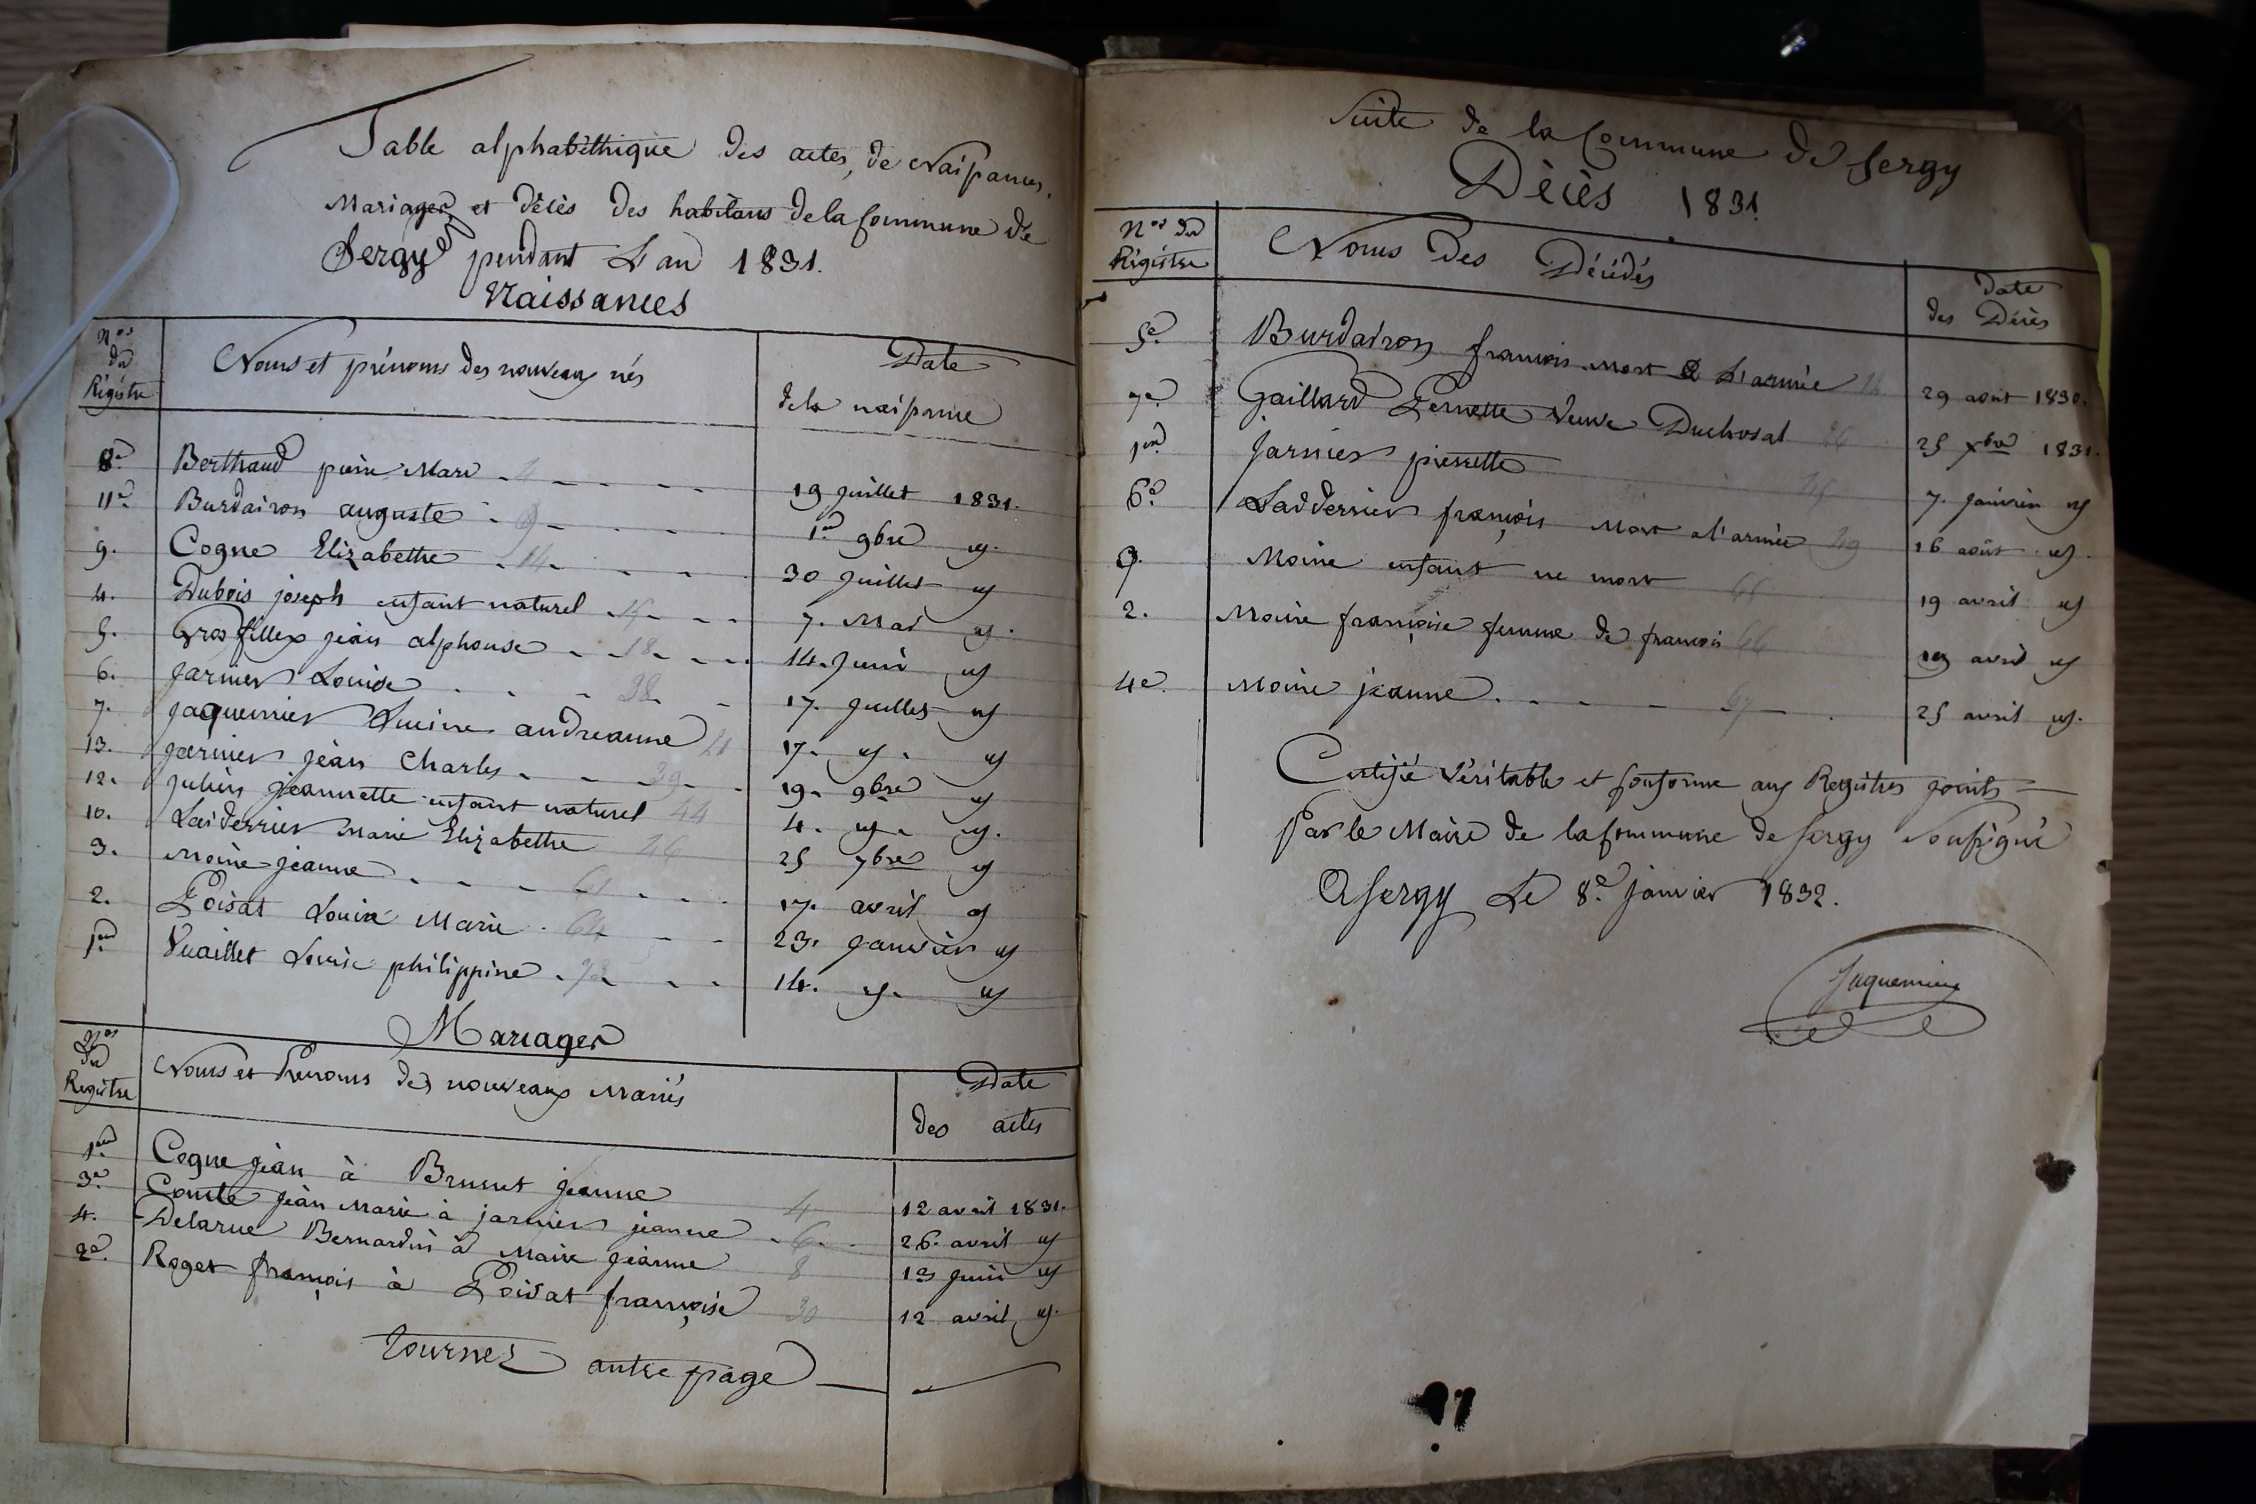 Table alphabéthique des actes, de Naissances,
Mariages et Décès des habitans de la Commune de
Sergy pendant L'an 1831.
Naissances
Nos du Régistre
Noms et prénoms des nouveaux nés
Date de la naissance
8e. Berthaud pierre Marc 4 19 juillet 1831.
11e. Burdairon auguste 9 1er 9bre id.
9. Cogne Elizabethe 14 30 juillet id
4. Dubois joseph enfant naturel 15 7. Mai id.
5. Gros fillex jéan alphonse 18 14. juin id
6. jarnier Louise 38 17. juillet id
7. jaquemier Lucine andreanne 21 17. id. id
13. jarnier jéan Charles 39 19. 9bre id
12. julien jéannette enfant naturel 44 4. id. id.
10. Laiderrier Marie Elizabethe 46 25 7bre id
3. Moine jéanne 61 17. avril id
2. Poisat Louise Marie 64 23. janvier id
1er Vuaillet Louise philippine 73 14. id. id
Mariages
Nos du Registre
Noms et Prénoms des nouveaux Mariés
Date des actes
1er. Cogne jéan à Brunet jéanne 4 12 avril 1831.
3e. Comte jéan Marie à jarnier jéanne 6 26. avril id
4. Delarue Bernardin à Maire jéanne 8 13 juin id
2e. Roget françois à Poisat françoise 30 12 avril id.
Tournez autre page
Suite de la Commune de Sergy
Décès 1831.
Nos du Régistre
Noms des Décédés
Date des Décès
5e. Burdairon francois mort à L'armée 14 29 août 1830.
7e. Gaillard Pernette Veuve Duchosal 26 25 xbre 1831.
1er. jarnier pierrette 35 7. janvier id
6e. Ladderrier françois Mort a l'armée 49 16 août id.
3. Moine enfant ne mort 65 19 avril id
2. Moine françoise femme de francois 66 19 avril id
4e. Moine jeanne 67 25 avril id.
Certifié Véritable et Conforme aux Registres joints
Par le Maire de la Commune de Sergy Soussigné
A Sergy Le 8e. janvier 1832.
Jaquemier